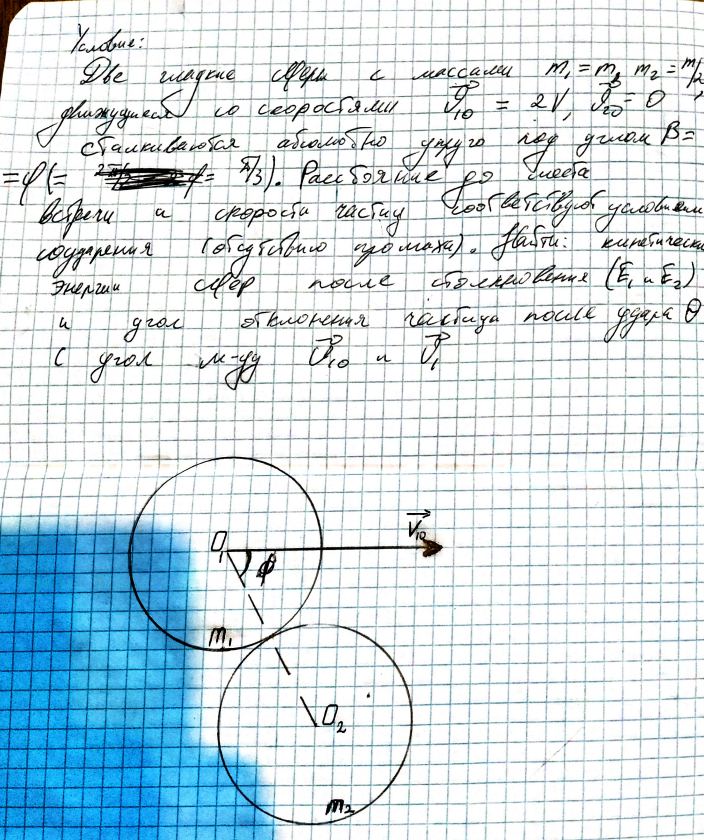 Условие:
Две гладкие сферы с массами m₁ = m, m₂ = m/2,
движущиеся со скоростями V⃗₁₀ = 2V, V⃗₂₀ = 0
сталкиваются абсолютно упруго под углом β =
= φ (= φ = π/3). Расстояние до места
встречи и скорости частиц соответствуют условиям
соударения (отсутствию промаха). Найти: кинетически
энергии сфер после столкновения (E₁ и E₂)
и угол отклонения частицы после удара θ
( угол м-ду V⃗₁₀ и V⃗₁
O₁
V⃗₁₀
φ
m₁
O₂
m₂